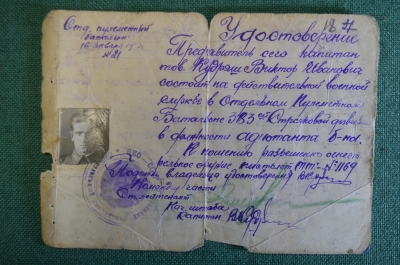 Отд. пулеметный
батальон
16 января
№ 21
18
Удостоверение
Предъявитель сего капитан
тов. Кудряш Виктор Иванович
состоит на действительной военной
службе в Отдельном Пулеметном
Батальоне 383й Стрелковой дивиз
в должности адъютанта б-на.
К ношению разрешено огнест
рельное оружие пистолет "ТТ" №
Подпись владельца удостоверения
Командир части
Нач. штаба
Капитан